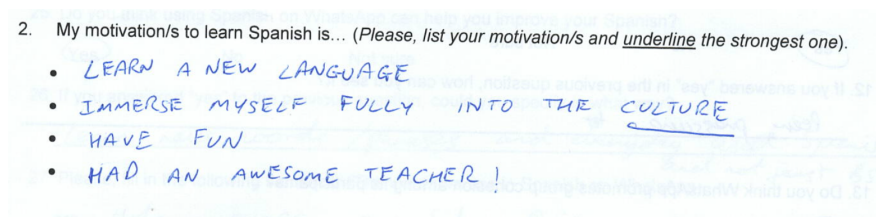 2. My motivation/s to learn Spanish is... (Please, list your motivation/s and underline the strongest one).
• LEARN A NEW LANGUAGE
• IMMERSE MYSELF FULLY INTO THE CULTURE
• HAVE FUN
• HAD AN AWESOME TEACHER!